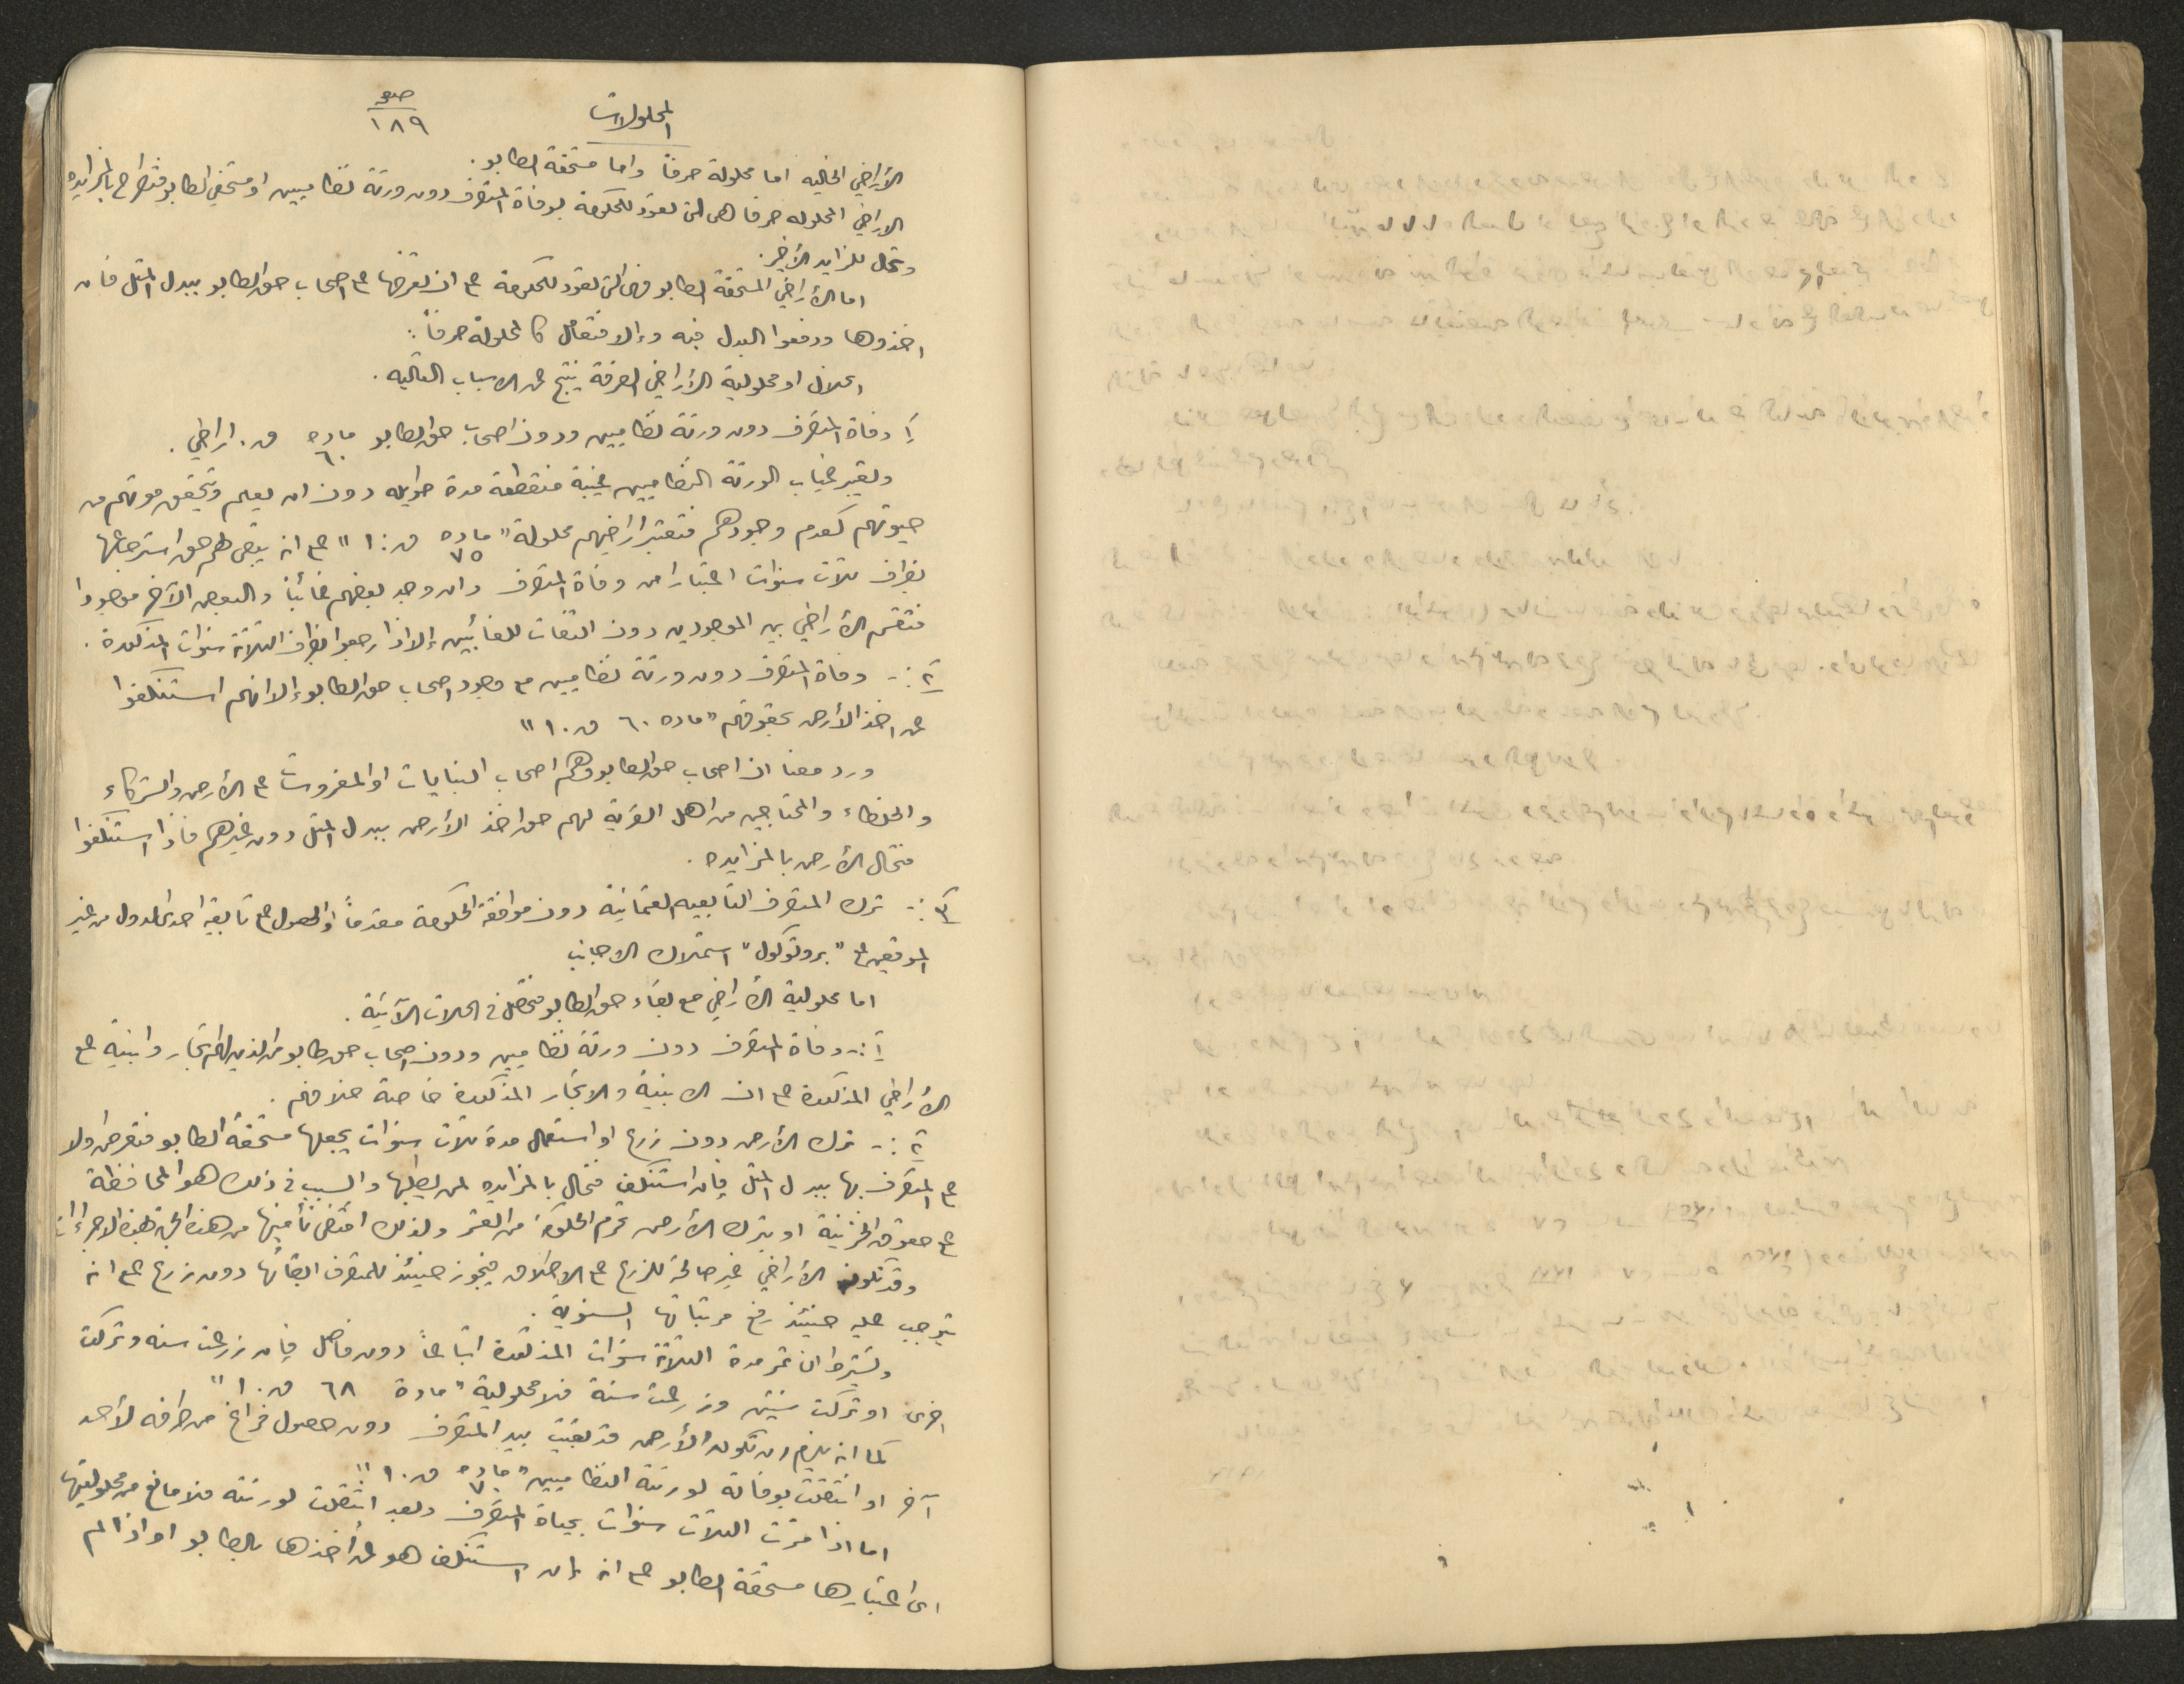 المحلولات
صحو
١٨٩
الأراضي الخاليه اما محلولة صرفاً واما مستحقة الطابو.
الاراضي المحلوله صرفا هى التى تعود للحكومة بوفاة المتصرف دون ورثة نظاميين او مستحقي الطابو فتطرح بالمزايده
وتحال للمزايد الأخير.
اما الأراضي المستحقة الطابو فهى التى تعود للحكومة على ان تعرضها على اصحاب حق الطابو ببدل المثل فان
اخذوها ودفعوا البدل فبه وإلا فتعامل كالمحلولة صرفاً:
انحلال او محلولية الأراضي الصرفة ينتج عن الاسباب التاليه.
١ً وفاة المتصرف دون ورثة نظاميين ودون اصحاب حق الطابو ماده ٦٠ ق. اراضي.
ويعتبر غياب الورثة النظاميين غيبة منقطعة مدة طويله دون ان يعلم ويتحقق موتهم من
حيوتهم كعدم وجودهم فتعتبر اراضيهم محلولة "ماده ٧٥ ق. ا" على انه يبقى لهم حق استرجاعها
بظرف ثلاث سنوات اعتبارا من وفاة المتصرف وان وجد بعضهم غائباً والبعض الآخر موجودا
فتقسم الأراضي بين الموجودين دون التفات للغائبين إلا اذا رجعوا بظرف الثلاثة سنوات المذكورة.
٢ً :- وفاة المتصرف دون ورثة نظاميين مع وجود اصحاب حق الطابو إلا انهم استنكفوا
عن اخذ الأرض بحقوقهم "ماده ٦٠ ق. ا"
ورد معنا ان اصحاب حق الطابو وهم اصحاب البنايات او المغروسات على الأرض والشركاء
والخلطاء والمحتاجين من اهل القرية لهم حق اخذ الأرض ببدل المثل دون غيرهم فاذا استنكفوا
فتحال الأرض بالمزايده.
٣ً :- ترك المتصرف التابعيه العثمانية دون موافقة الحكومة مقدماً او الحصول على تابعية احدى الدول من غير
الموقعين على "بروتوكول" استملاك الاجانب
اما محلولية الأراضي مع بقاء حق الطابو فتحصل في الحالات الآتية.
١ً :- وفاة المتصرف دون ورثة نظاميين ودون اصحاب حق طابو من الذين لهم اشجار وابنية على
الأراضي المذكورة على ان الابنية والاشجار المذكورة خاصة خلافهم.
٢ً :- ترك الأرض بدون زرع او استعمال مدة ثلاث سنوات يجعلها مستحقة الطابو فتعرض اولا
على المتصرف بها ببدل المثل فإن استنكف فتحال بالمزايده لمن يطلبها والسبب في ذلك هو المحافظة
على حقوق الخزينة او بترك الأرض تحرم الحكومة من العشر ولذلك اقتضى تأمينها من هذه الجهة بهذه الاجراءات
وقد تكون الأراضي غير صالحة للزرع على الاطلاق فيجوز حينئذ للمتصرف ابقائها دون زرع على انه
يتوجب عليه حينئذ رفع مرتباتها السنوية.
ويشترط ان تمر مدة الثلاثة سنوات المذكورة اتباعاً دون فاصل فإن زرعت سنه وتركت
اخرى او تركت سنتين وزرعت سنة فلا محلولية "مادة ٦٨ ق. ا"
كما انه يلزم ان تكون الأرض قد بقيت بيد المتصرف دون حصول فراغ من طرفه لأحد
آخر او انتقلت بوفاته لورثته النظاميين "ماده ٧٠ ق. ا"
اما اذا مرت الثلاث سنوات بحياة المتصرف وبعد انتقلت لورثته فلا مانع من محلوليتها
اى اعتبارها مستحقة الطابو على انه إن استنكف هو عن أخذها بالطابو او اذا لم